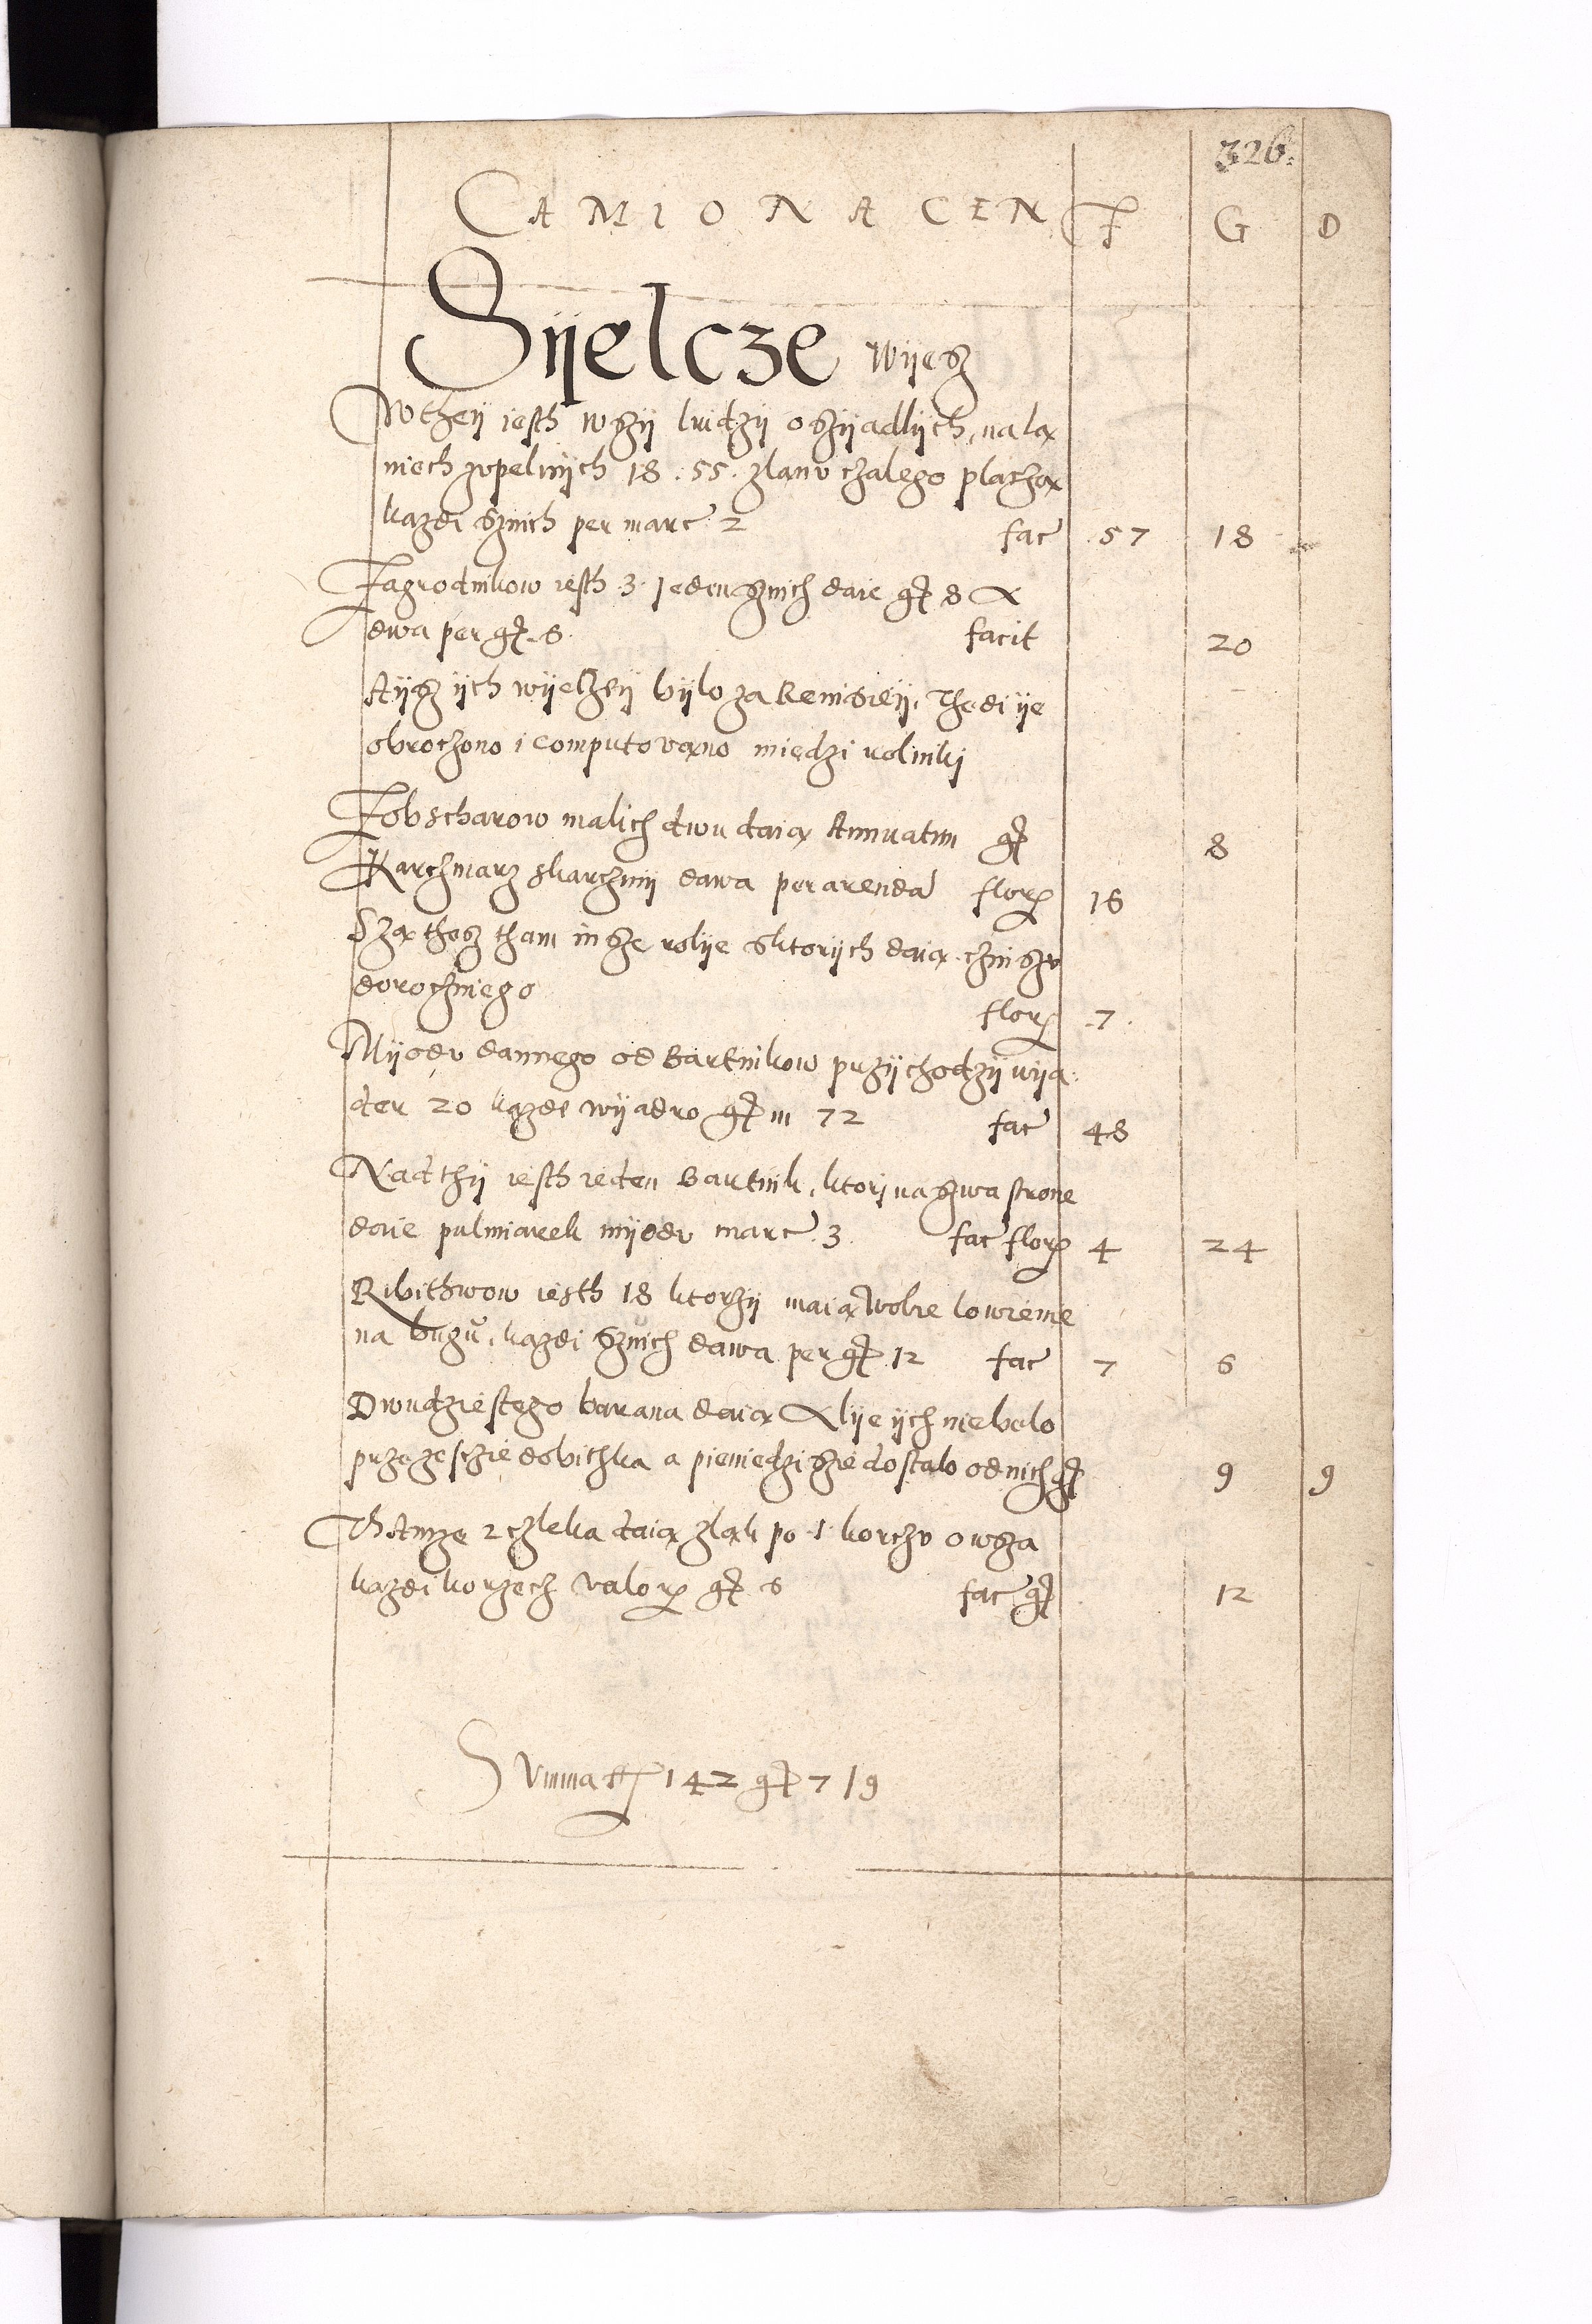 326.
CAMIONACEN F G D
Sijelcze wijesz
W theij iesth wszij ludzij oszijadlijch, na lа
niech zvpelnijch 18. 55. zlanv czalego placzą
kazdi sznich per marc 2 fac 57 18
Zagrodnikow iesth 3. Jeden sznich daie gr 8 A
dwa per gr. 6. facit 20
Aijsz ijch wijeczsij bijlo za Remisieij, Thedi ije
obroczono i computovano miedzi rolniki
Zobscharow malich dwu daią Annuatim gr 8
Karczmarz skarczmij dawa per arenda flor 16
Szą thesz tham insze rolije sktorijch daią czinszv
dorocznego flor 7.
Mijodv dannego od Bartnikow przijchodzij wija
der 20 kazde wijadro gr in 72 fac 48
Nad thij iesth ieden Bartnik, ktorj na szwa strone
daie pulmiarek mijodv marc 3. fac flor 4 24
Ribithwow iesth 18 ktorzij maią wolne lowienie
na bugu, kazdi sznich dawa per gr 12 fac 7 6
Dwudziestego barana daią Alije ijch niebelo
przeze sczie dobithka a pieniedzi szie dostalo od nich gr 9 9
Thamze 2 czleka daią zląk po 1 korczv owsza
kazdi korzecz valor gr 6 fac gr 12
Summa fl 142 gr 7 / 9